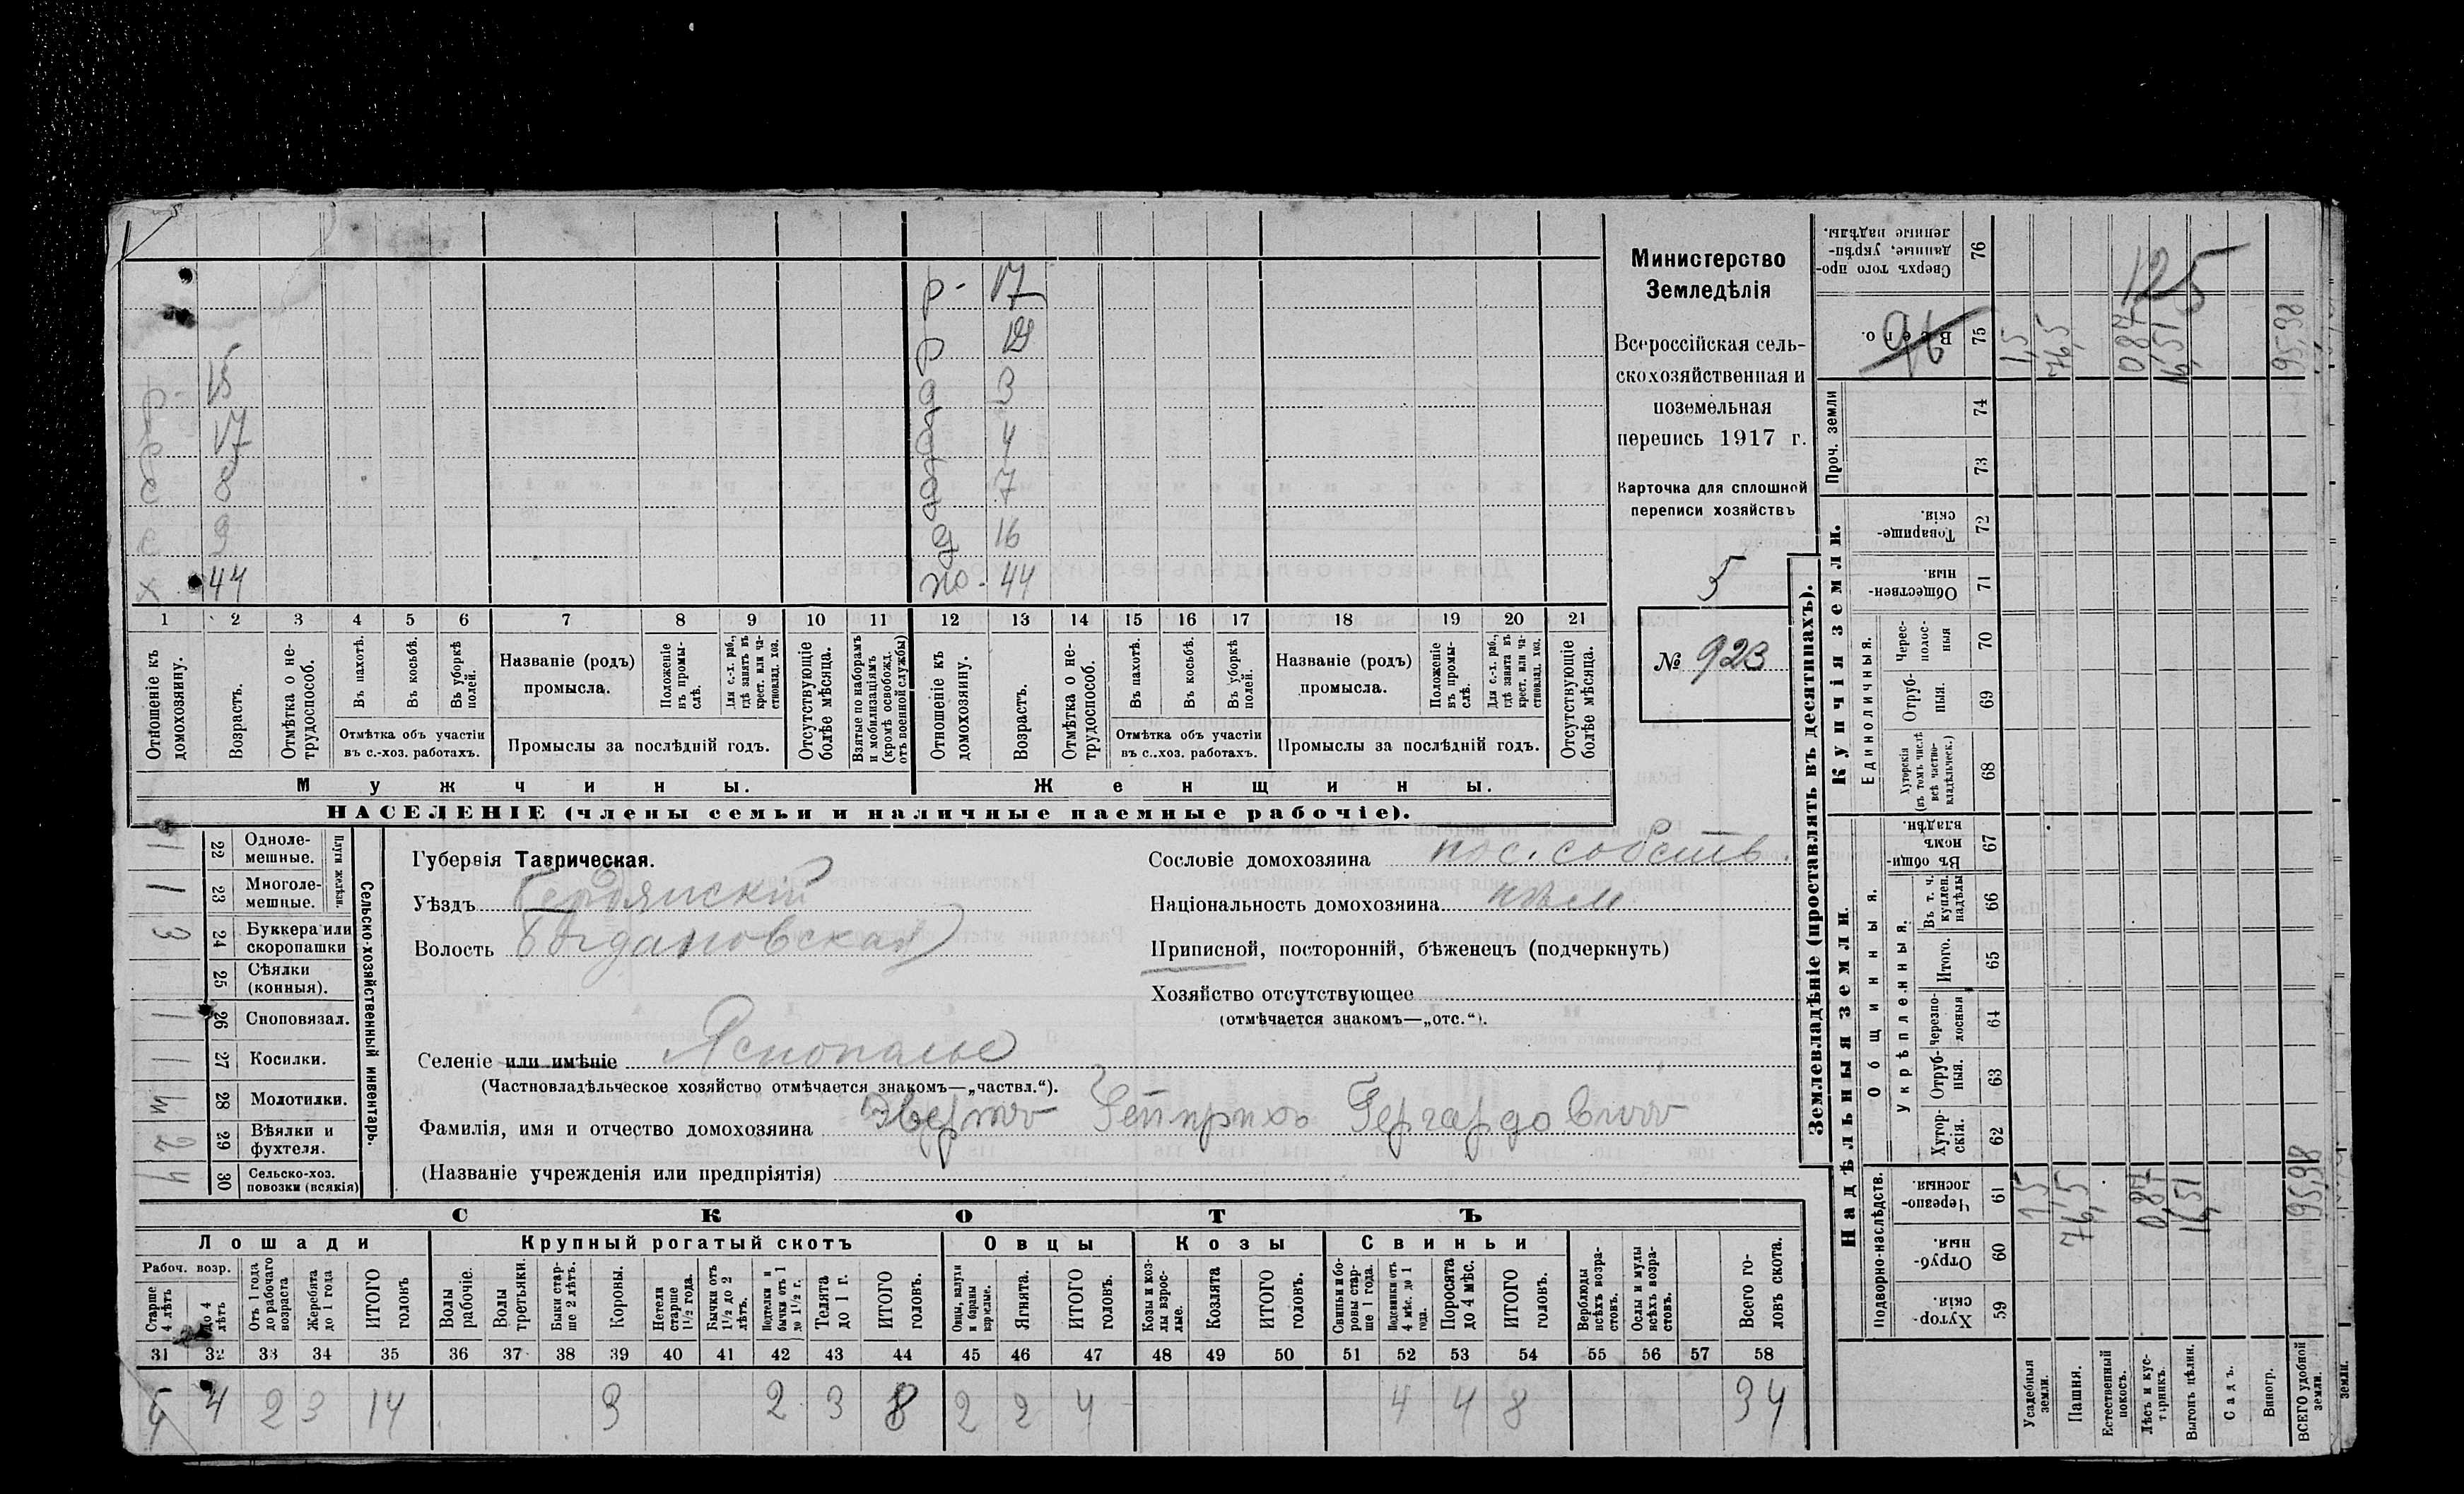 р - 17
р 19
д 3
р - 15 д 4
р 17 д 7
с 8 д 16
с 9
х 44 жо - 44
1 2 3 4 5 6 7 8 9 10 11 12 13 14 15 16 17 18 19 20 21
Отношеніе къ домохозяину.
Возрастъ.
Отмѣтка о нетрудоспособ.
Въ пахотѣ.
Въ косьбѣ.
Въ уборкѣ полей.
Отмѣтка объ участіи
въ с.-хоз. работахъ.
Названіе (родъ)
промысла.
Положеніе въ промыслѣ.
Для с.-х. раб., гдѣ занятъ въ крест. или частновлад. хоз.
Промыслы за послѣдній годъ.
Отсутствующіе болѣе мѣсяца.
Взятые по наборамъ и мобилизаціямъ (кромѣ освобожд. отъ военной службы)
Отношеніе къ домохозяину.
Возрастъ.
Отмѣтка о нетрудоспособ.
Въ пахотѣ.
Въ косьбѣ.
Въ уборкѣ полей.
Отмѣтка объ участіи
въ с.-хоз. работахъ.
Названіе (родъ)
промысла.
Положеніе въ промыслѣ.
Для с.-х. раб., гдѣ занята въ крест. или частновлад. хоз.
Промыслы за послѣдній годъ.
Отсутствующіе болѣе мѣсяца.
Мужчины.
Женщины.
НАСЕЛЕНІЕ (члены семьи и наличные наемные рабочіе).
Министерство
Земледѣлія
Всероссійская сель-
скохозяйственная и
поземельная
перепись 1917 г.
Карточка для сплошной
переписи хозяйствъ
5
№ 923
Сельско-хозяйственный инвентарь.
Плуги желѣзн.
1 22 Одноле-
мешные.
1 23 Многоле-
мешные.
3 24 Буккера или
скоропашки
25 Сѣялки
(конныя).
1 26 Сноповязал.
1 27 Косилки.
28 Молотилки.
2 29 Вѣялки и
фухтеля.
4 30 Сельско-хоз.
повозки (всякія)
Губернія Таврическая.
Уѣздъ Бердянскій
Волость Богдановская
Селеніе или имѣніе Яснополье
(Частновладѣльческое хозяйство отмѣчается знакомъ—„частвл.“).
Фамилія, имя и отчество домохозяина Эвертъ Гейнрихъ Гергардовичъ
(Названіе учрежденія или предпріятія)
Сословіе домохозяина пос. собств.
Національность домохозяина нѣм
Приписной, посторонній, бѣженец (подчеркнуть)
Хозяйство отсутствующее
(отмѣчается знакомъ—„отс.“).
СКОТЪ
Лошади
Крупный рогатый скотъ
Овцы
Козы
Свиньи
Рабоч. возр.
Старше 4 лѣтъ
до 4 лѣтъ
Отъ 1 года до рабочаго возраста
Жеребята до 1 года
ИТОГО головъ
Волы рабочіе.
Волы третьяки.
Быки старше 2 лѣтъ.
Коровы.
Нетели старше 1½ года.
Бычки отъ 1½ до 2 лѣтъ.
Подтелки и бычки отъ 1 до 1½ г.
Телята до 1 г.
ИТОГО головъ.
Овцы, валухи и бараны взрослые.
Ягнята.
ИТОГО головъ.
Козы и козлы взрослые.
Козлята
ИТОГО головъ.
Свиньи и боровы старше 1 года.
Подсвинки отъ 4 мѣс. до 1 года.
Поросята до 4 мѣс.
ИТОГО головъ.
Верблюды всѣхъ возрастовъ.
Ослы и мулы всѣхъ возрастовъ.
Всего головъ скота.
31 32 33 34 35 36 37 38 39 40 41 42 43 44 45 46 47 48 49 50 51 52 53 54 55 56 57 58
4 2 3 14 3 2 3 8 2 2 4 4 4 8 34
Землевладѣніе (проставлять въ десятинахъ).
Надѣльныя земли.
Купчія земли.
Проч. земли
Подворно-наслѣдств.
Общинныя.
Укрѣпленныя.
Единоличныя.
Хуторскія. 59
Отрубныя. 60
Черезполосныя. 61
Хуторскія. 62
Отрубныя. 63
Черезполосныя 64
Итого. 65
Въ т. ч. куплен. надѣлы 66
Въ общинномъ владѣн. 67
Хуторскія (въ томъ числѣ всѣ частновладѣльческ.) 68
Отрубныя. 69
Чресполосныя 70
Общественныя. 71
Товарищескія. 72
73
74
Всего. 75
Сверхъ того проданные, укрѣпленные надѣлы. 76
96
125
Усадебныя земли. 1,5 1,5
Пашня. 76,5 76,5
Естественный покосъ.
Лѣсъ и кустарникъ. 0,87 0,87
Выгонъ цѣлин. 16,51 16,51
Садъ.
Виногр.
ВСЕГО удобной земли. 95,98 95,98
земли.